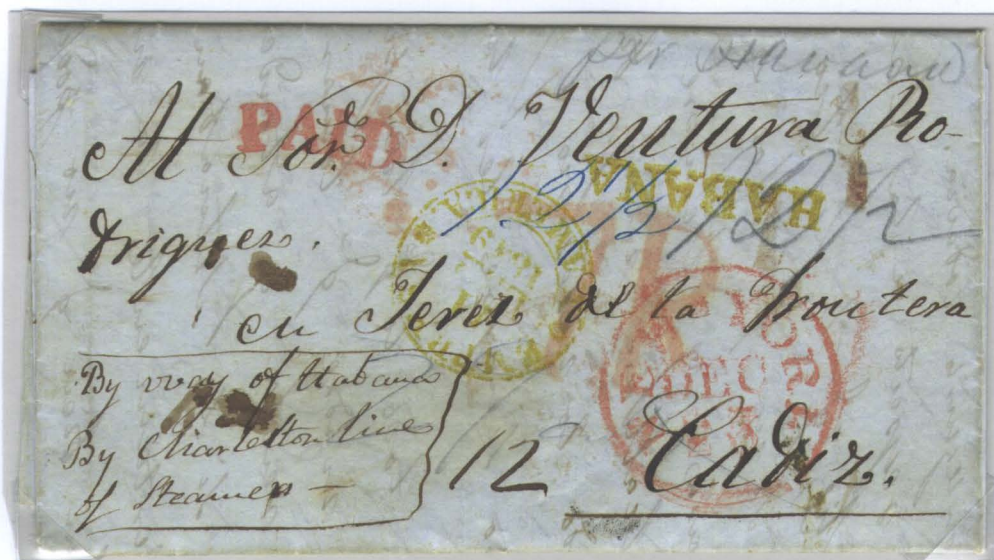 per Havana
PAID
Al Sor. D. Ventura Ro-
driguez.
HABANA
12½
12½
en Jerez de la Frontera
By way of Habana
By Charleston line
of Steamers —
NEW YORK
DEC
12
Cadiz.